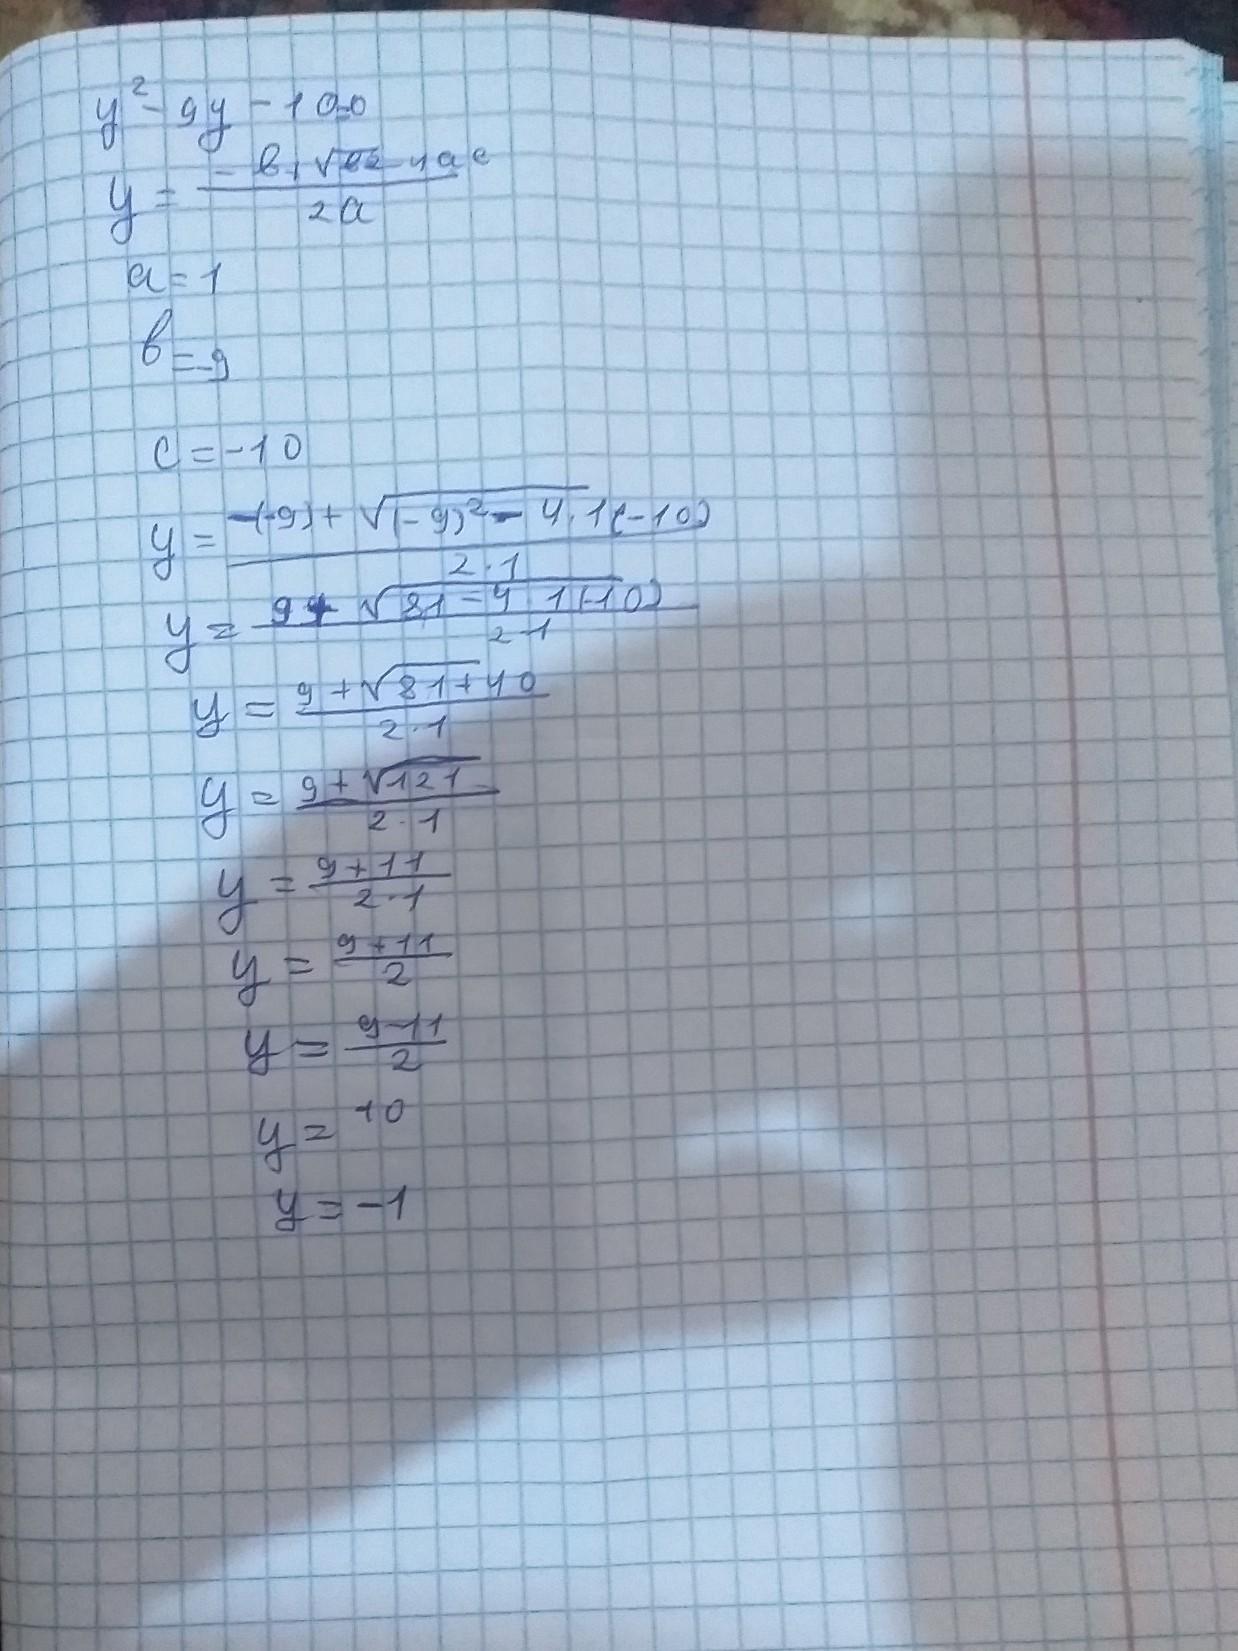 y² - 9y - 10=0
y = -b+√b2-4ac / 2a
a=1
b=-9
c=-10
y = -(-9)+√(-9)²-4·1(-10) / 2·1
y = 9+√81-4·1(-10) / 2·1
y = 9+√81+40 / 2·1
y = 9+√121 / 2·1
y = 9+11 / 2·1
y = 9+11 / 2
y = 9-11 / 2
y = 10
y = -1